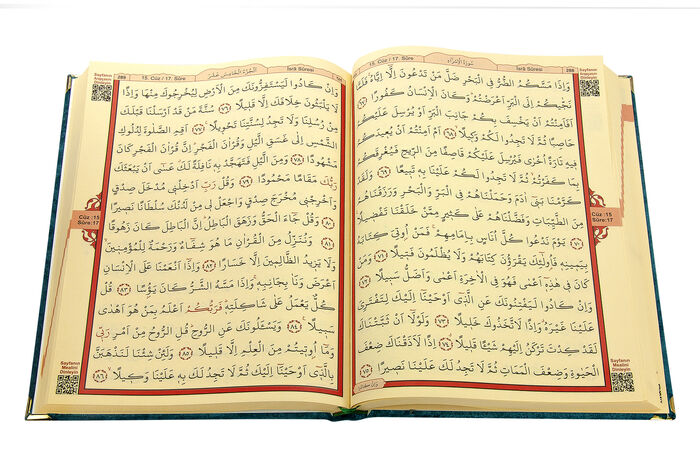 289
15. Cüz / 17. Sûre
اَلْجُزْءُ الْخَامِسَ عَشَرَ
İsrâ Sûresi
15. Cüz / 17. Sûre
سُورَةُ الْاِسْرَاءِ
İsrâ Sûresi
288
وَاِذَا مَسَّكُمُ الضُّرُّ فِي الْبَحْرِ ضَلَّ مَنْ تَدْعُونَ اِلَّا اِيَّاهُ فَلَمَّا
نَجّٰيكُمْ اِلَى الْبَرِّ اَعْرَضْتُمْ وَكَانَ الْاِنْسَانُ كَفُورًا ﴿٦٧﴾
اَفَاَمِنْتُمْ اَنْ يَخْسِفَ بِكُمْ جَانِبَ الْبَرِّ اَوْ يُرْسِلَ عَلَيْكُمْ
حَاصِبًا ثُمَّ لَا تَجِدُوا لَكُمْ وَكِيلًا ﴿٦٨﴾ اَمْ اَمِنْتُمْ اَنْ يُعِيدَكُمْ
فِيهِ تَارَةً اُخْرٰى فَيُرْسِلَ عَلَيْكُمْ قَاصِفًا مِنَ الرِّيحِ فَيُغْرِقَكُمْ
بِمَا كَفَرْتُمْ ثُمَّ لَا تَجِدُوا لَكُمْ عَلَيْنَا بِهِ تَبِيعًا ﴿٦٩﴾ وَلَقَدْ
كَرَّمْنَا بَنِي اٰدَمَ وَحَمَلْنَاهُمْ فِي الْبَرِّ وَالْبَحْرِ وَرَزَقْنَاهُمْ
مِنَ الطَّيِّبَاتِ وَفَضَّلْنَاهُمْ عَلٰى كَثِيرٍ مِمَّنْ خَلَقْنَا تَفْضِيلًا
﴿٧٠﴾ يَوْمَ نَدْعُوا كُلَّ اُنَاسٍ بِاِمَامِهِمْ فَمَنْ اُوتِيَ كِتَابَهُ
بِيَمِينِهِ فَاُولٰئِكَ يَقْرَؤُنَ كِتَابَهُمْ وَلَا يُظْلَمُونَ فَتِيلًا ﴿٧١﴾ وَمَنْ
كَانَ فِي هٰذِهِ اَعْمٰى فَهُوَ فِي الْاٰخِرَةِ اَعْمٰى وَاَضَلُّ سَبِيلًا ﴿٧٢﴾
وَاِنْ كَادُوا لَيَفْتِنُونَكَ عَنِ الَّذِي اَوْحَيْنَا اِلَيْكَ لِتَفْتَرِيَ
عَلَيْنَا غَيْرَهُ وَاِذًا لَاتَّخَذُوكَ خَلِيلًا ﴿٧٣﴾ وَلَوْلَا اَنْ ثَبَّتْنَاكَ
لَقَدْ كِدْتَ تَرْكَنُ اِلَيْهِمْ شَيْئًا قَلِيلًا ﴿٧٤﴾ اِذًا لَاَذَقْنَاكَ ضِعْفَ
الْحَيٰوةِ وَضِعْفَ الْمَمَاتِ ثُمَّ لَا تَجِدُ لَكَ عَلَيْنَا نَصِيرًا ﴿٧٥﴾
وَاِنْ كَادُوا
Cüz :15
Sûre:17
Sayfanın
Arapçasını
Dinleyin
Sayfanın
Mealini
Dinleyin
وَاِنْ كَادُوا لَيَسْتَفِزُّونَكَ مِنَ الْاَرْضِ لِيُخْرِجُوكَ مِنْهَا وَاِذًا
لَا يَلْبَثُونَ خِلَافَكَ اِلَّا قَلِيلًا ﴿٧٦﴾ سُنَّةَ مَنْ قَدْ اَرْسَلْنَا قَبْلَكَ
مِنْ رُسُلِنَا وَلَا تَجِدُ لِسُنَّتِنَا تَحْوِيلًا ﴿٧٧﴾ اَقِمِ الصَّلٰوةَ لِدُلُوكِ
الشَّمْسِ اِلٰى غَسَقِ الَّيْلِ وَقُرْاٰنَ الْفَجْرِ اِنَّ قُرْاٰنَ الْفَجْرِ كَانَ
مَشْهُودًا ﴿٧٨﴾ وَمِنَ الَّيْلِ فَتَهَجَّدْ بِهِ نَافِلَةً لَكَ عَسٰى اَنْ يَبْعَثَكَ
رَبُّكَ مَقَامًا مَحْمُودًا ﴿٧٩﴾ وَقُلْ رَبِّ اَدْخِلْنِي مُدْخَلَ صِدْقٍ
وَاَخْرِجْنِي مُخْرَجَ صِدْقٍ وَاجْعَلْ لِي مِنْ لَدُنْكَ سُلْطَانًا نَصِيرًا
﴿٨٠﴾ وَقُلْ جَاءَ الْحَقُّ وَزَهَقَ الْبَاطِلُ اِنَّ الْبَاطِلَ كَانَ زَهُوقًا
﴿٨١﴾ وَنُنَزِّلُ مِنَ الْقُرْاٰنِ مَا هُوَ شِفَاءٌ وَرَحْمَةٌ لِلْمُؤْمِنِينَ
وَلَا يَزِيدُ الظَّالِمِينَ اِلَّا خَسَارًا ﴿٨٢﴾ وَاِذَا اَنْعَمْنَا عَلَى الْاِنْسَانِ
اَعْرَضَ وَنَاٰ بِجَانِبِهِ وَاِذَا مَسَّهُ الشَّرُّ كَانَ يَؤُسًا ﴿٨٣﴾ قُلْ
كُلٌّ يَعْمَلُ عَلٰى شَاكِلَتِهِ فَرَبُّكُمْ اَعْلَمُ بِمَنْ هُوَ اَهْدٰى
سَبِيلًا ﴿٨٤﴾ وَيَسْـَٔلُونَكَ عَنِ الرُّوحِ قُلِ الرُّوحُ مِنْ اَمْرِ رَبِّي
وَمَا اُوتِيتُمْ مِنَ الْعِلْمِ اِلَّا قَلِيلًا ﴿٨٥﴾ وَلَئِنْ شِئْنَا لَنَذْهَبَنَّ
بِالَّذِي اَوْحَيْنَا اِلَيْكَ ثُمَّ لَا تَجِدُ لَكَ بِهِ عَلَيْنَا وَكِيلًا ﴿٨٦﴾
Cüz :15
Sûre:17
Sayfanın
Arapçasını
Dinleyin
Sayfanın
Mealini
Dinleyin